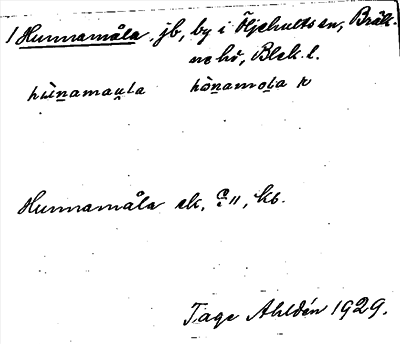 1 Hunnamåla jb, by i Öljehults sn, Bräk-
ne hd, Blek. l.
hùnamaula hònamola
Hunnamåla ek. C 11, kb.
Tage Ahldén 1929.